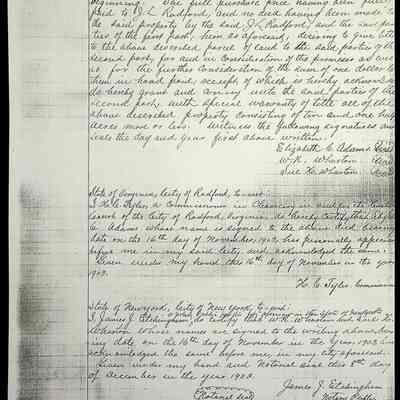 beginning. The full purchase price having been fully
paid to J. L. Radford, and no deed having been made to
the said property by the said J. L. Radford, and the said par-
ties of the first part, heirs as aforesaid, desiring to give title
to the above described parcel of land to the said parties of the
second part, for and in consideration of the premises as well
as for the further consideration of the sum of one dollar to
them in hand paid, receipt of which is hereby acknowledged
do hereby grant and convey unto the said parties of the
second part, with special warranty of title all of the
above described property consisting of two and one half
acres more or less. Witness the following signatures and
seals the day and year first above written.
Elizabeth C Adams Seal
W. R. Wharton Seal
Sue H. Wharton Seal
State of Virginia, City of Radford, to wit:
I H. C. Tyler, a Commissioner in Chancery in and for the
Court of the City of Radford, Virginia, do hereby certify that
C Adams whose name is signed to the above deed bearing
date on the 16th day of November, 1903, has personally appeared
before me in my said city and acknowledged the same.
Given under my hand this 16th day of November in the year
1903.
H. C. Tyler Commissioner
State of New York, City of New York to wit:
I, James J. Etchingham, do certify that W. R. Wharton and Sue H.
Wharton whose names are signed to the writing above, bear-
ing date on the 16th day of November in the year 1903 have
acknowledged the same before me, in my city aforesaid.
Given under my hand and Notarial seal this 8th day
of December in the year 1903.
James J. Etchingham
(Notarial Seal) Notary Public